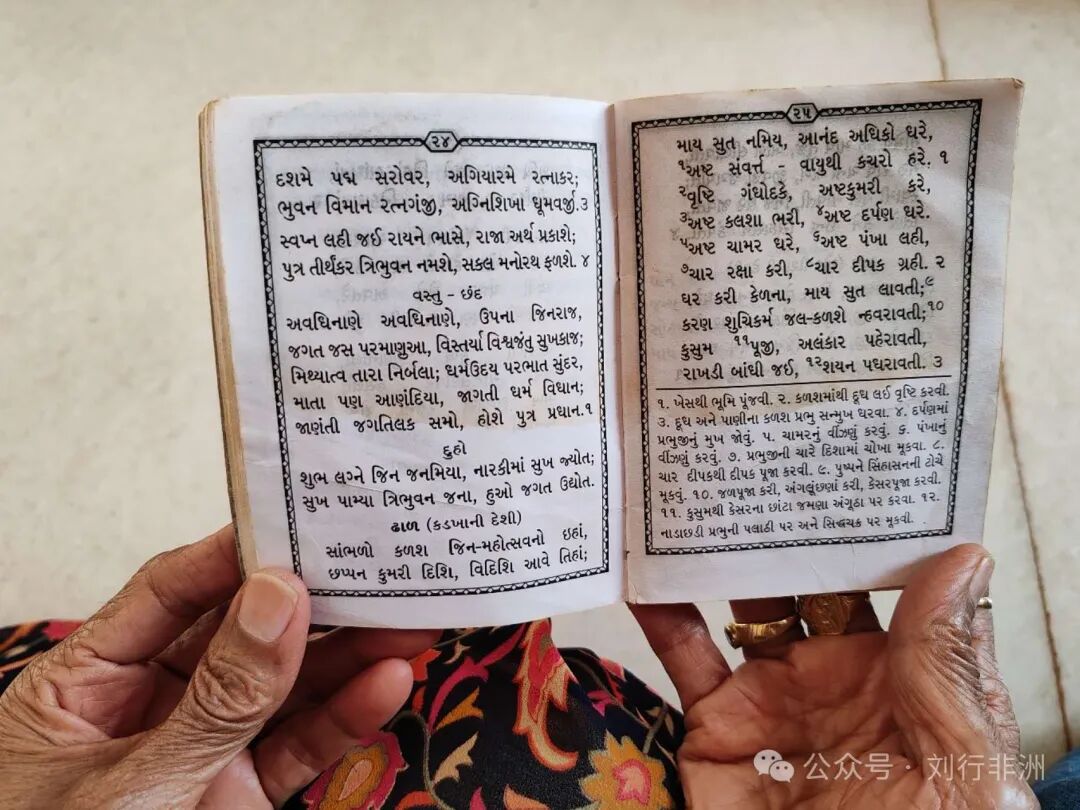 ૨૪
દશમે પદ્મ સરોવર, અગિયારમે રત્નાકર;
ભુવન વિમાન રત્નગંજી, અગ્નિશિખા ધૂમવર્જી.૩
સ્વપ્ન લહી જઈ રાયને ભાસે, રાજા અર્થ પ્રકાશે;
પુત્ર તીર્થંકર ત્રિભુવન નમશે, સકલ મનોરથ ફળશે. ૪
વસ્તુ - છંદ
અવધિનાણે અવધિનાણે, ઉપના જિનરાજ,
જગત જસ પરમાણુઆ, વિસ્તર્યા વિશ્વજંતુ સુખકાજ;
મિથ્યાત્વ તારા નિર્બલા; ધર્મઉદય પરભાત સુંદર,
માતા પણ આણંદિયા, જાગતી ધર્મ વિધાન;
જાણંતી જગતિલક સમો, હોશે પુત્ર પ્રધાન.૧
દુહો
શુભ લગ્ને જિન જનમિયા, નારકીમાં સુખ જ્યોત;
સુખ પામ્યા ત્રિભુવન જના, હુઓ જગત ઉદ્યોત.
ઢાળ (કડખાની દેશી)
સાંભળો કળશ જિન-મહોત્સવનો ઇહાં,
છપ્પન કુમરી દિશિ, વિદિશિ આવે તિહાં;
૨૫
માય સુત નમિય, આનંદ અધિકો ધરે,
૧અષ્ટ સંવર્ત્ત - વાયુથી કચરો હરે. ૧
૨વૃષ્ટિ ગંધોદકે, અષ્ટકુમરી કરે,
૩અષ્ટ કલશા ભરી, ૪અષ્ટ દર્પણ ધરે.
૫અષ્ટ ચામર ધરે, ૬અષ્ટ પંખા લહી,
૭ચાર રક્ષા કરી, ૮ચાર દીપક ગ્રહી. ૨
ઘર કરી કેળના, માય સુત લાવતી;૯
કરણ શુચિકર્મ જલ-કળશે ન્હવરાવતી;૧૦
કુસુમ ૧૧પૂજી, અલંકાર પહેરાવતી,
રાખડી બાંધી જઈ, ૧૨શયન પધરાવતી. ૩
૧. ખેસથી ભૂમિ પૂંજવી. ૨. કળશમાંથી દૂધ લઈ વૃષ્ટિ કરવી.
૩. દૂધ અને પાણીના કળશ પ્રભુ સન્મુખ ધરવા. ૪. દર્પણમાં
પ્રભુજીનું મુખ જોવું. ૫. ચામરનું વીંઝણું કરવું. ૬. પંખાનું
વીંઝણું કરવું. ૭. પ્રભુજીની ચારે દિશામાં ચોખા મૂકવા. ૮.
ચાર દીપકથી દીપક પૂજા કરવી. ૯. પુષ્પને સિંહાસનની ટોચે
મૂકવું. ૧૦. જળપૂજા કરી, અંગલૂંછણાં કરી, કેસરપૂજા કરવી.
૧૧. કુસુમથી કેસરના છાંટા જમણા અંગૂઠા પર કરવા. ૧૨.
નાડાછડી પ્રભુની પલાઠી પર અને સિદ્ધચક્ર પર મૂકવી.
公众号 · 刘行非洲